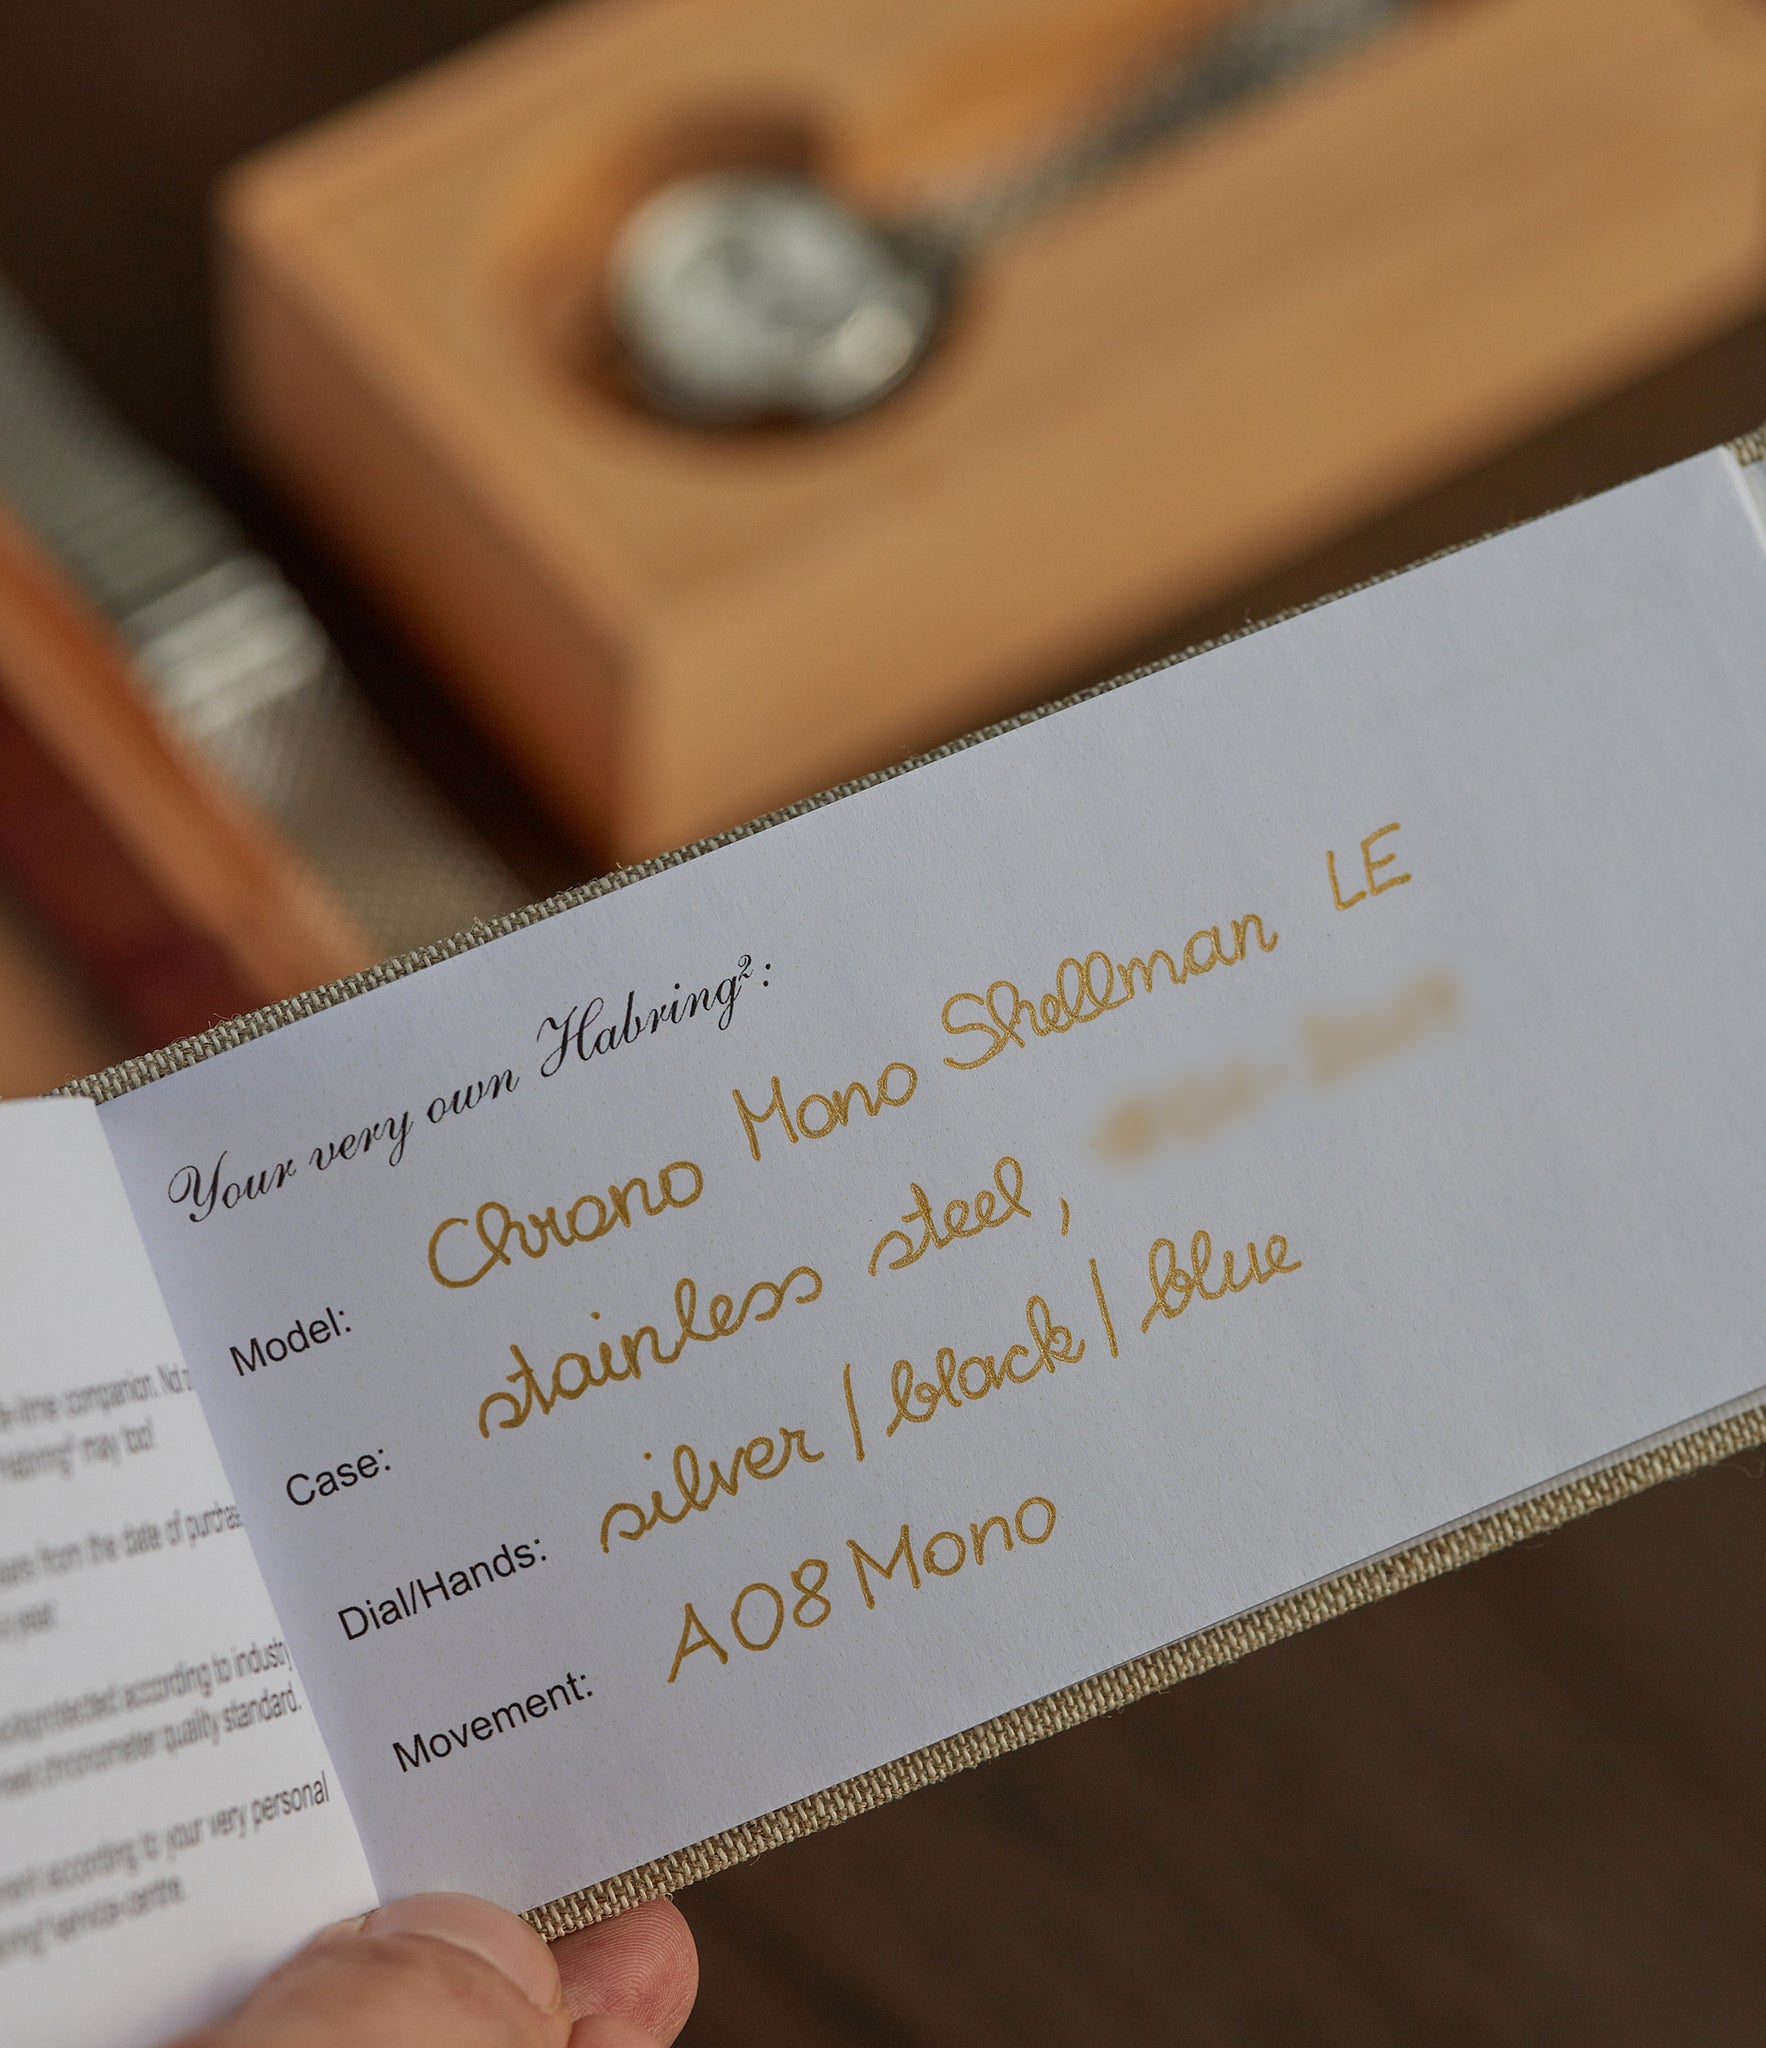 Your very own Habring²:
Model: Chrono Mono Shellman LE
Case: stainless steel,
Dial/Hands: silver / black / blue
Movement: A08 Mono
companion. Not
may too!
from the date of purchase
year.
protected according to industry
chronometer quality standard.
according to your very personal
service-centre